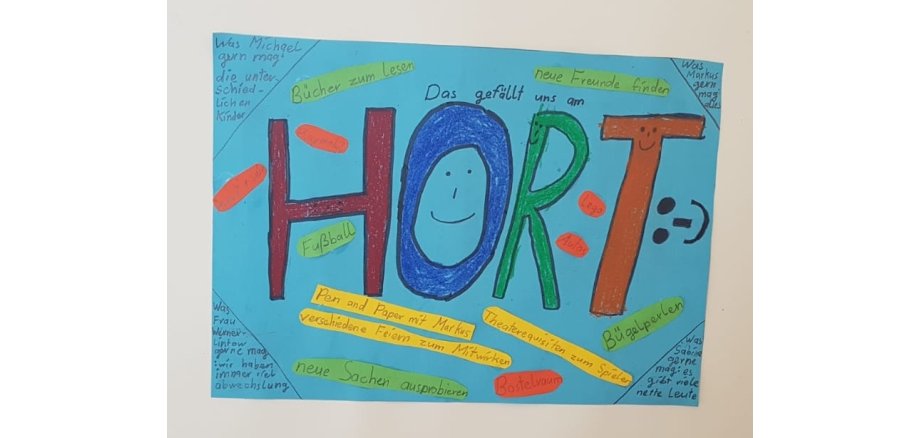 Was Michael
gern mag:
die unter-
schied-
lichen
Kinder
Bücher zum Lesen
neue Freunde finden
Was
Markus
gern
mag
Das gefällt uns am
HORT
Lego
Autos
Fußball
Pen and Paper mit Markus
verschiedene Feiern zum Mitwirken
Theaterrequisiten zum Spielen
Bügelperlen
neue Sachen ausprobieren
Bastelraum
Was
Frau
gerne mag
: wir haben
immer viel
abwechslung
Was
Sabine
gerne
mag: es
gibt viele
nette Leute